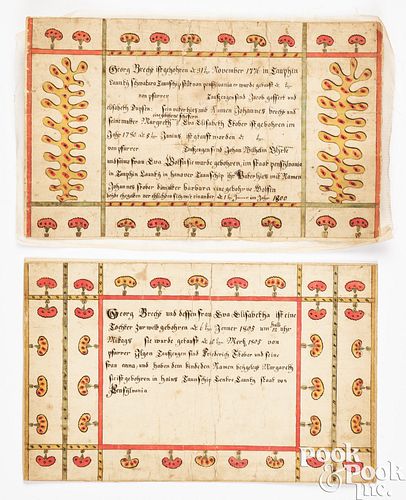 Georg Brechs ist gebohren d 31ten November 1776 in Tauphin
Caunty schwadara Taunschip staat von pensylvania er wurde getauft d ten
von pfarrer Taufzeugen sind Jacob geffert und
elisabeth Dupsen: sein vater hies mit Namen Johannes brechs und
seine mutter Margreth Eva Elisabeth Stober ist gebohren im
Jahr 1780 d 8ten Junius ist getauft worden d ten
von pfarrer Taufzeugen sind Johan Wilhelm
und seine frau Eva Wolfin sie wurde gebohren, im staat pensylvania
in Tauphin Caunty in hanover Taunschip ihr Vater hies mit Namen
Johannes stober die mutter barbara eine gebohrne Wolfin
beide begaben der ehlichen schwerd einander d ten Jenner im Jahr 1800
Georg Brechs und dessen frau Eva Elisabetha ist eine
Tochter zur welt gebohren d 6ten Jenner 1805 um halb 12 uhr
Mittags sie wurde getauft d 16ten Mertz 1805 von
pfarrer Ilgen Taufzeugen sind Friederich Stober und seine
frau anna, und haben dem kinde den Namen beygelegt Margareth
sie ist gebohren in hains Taunschip Centre Caunty staat von
Pensylvania
Pook
& Pook
Inc.